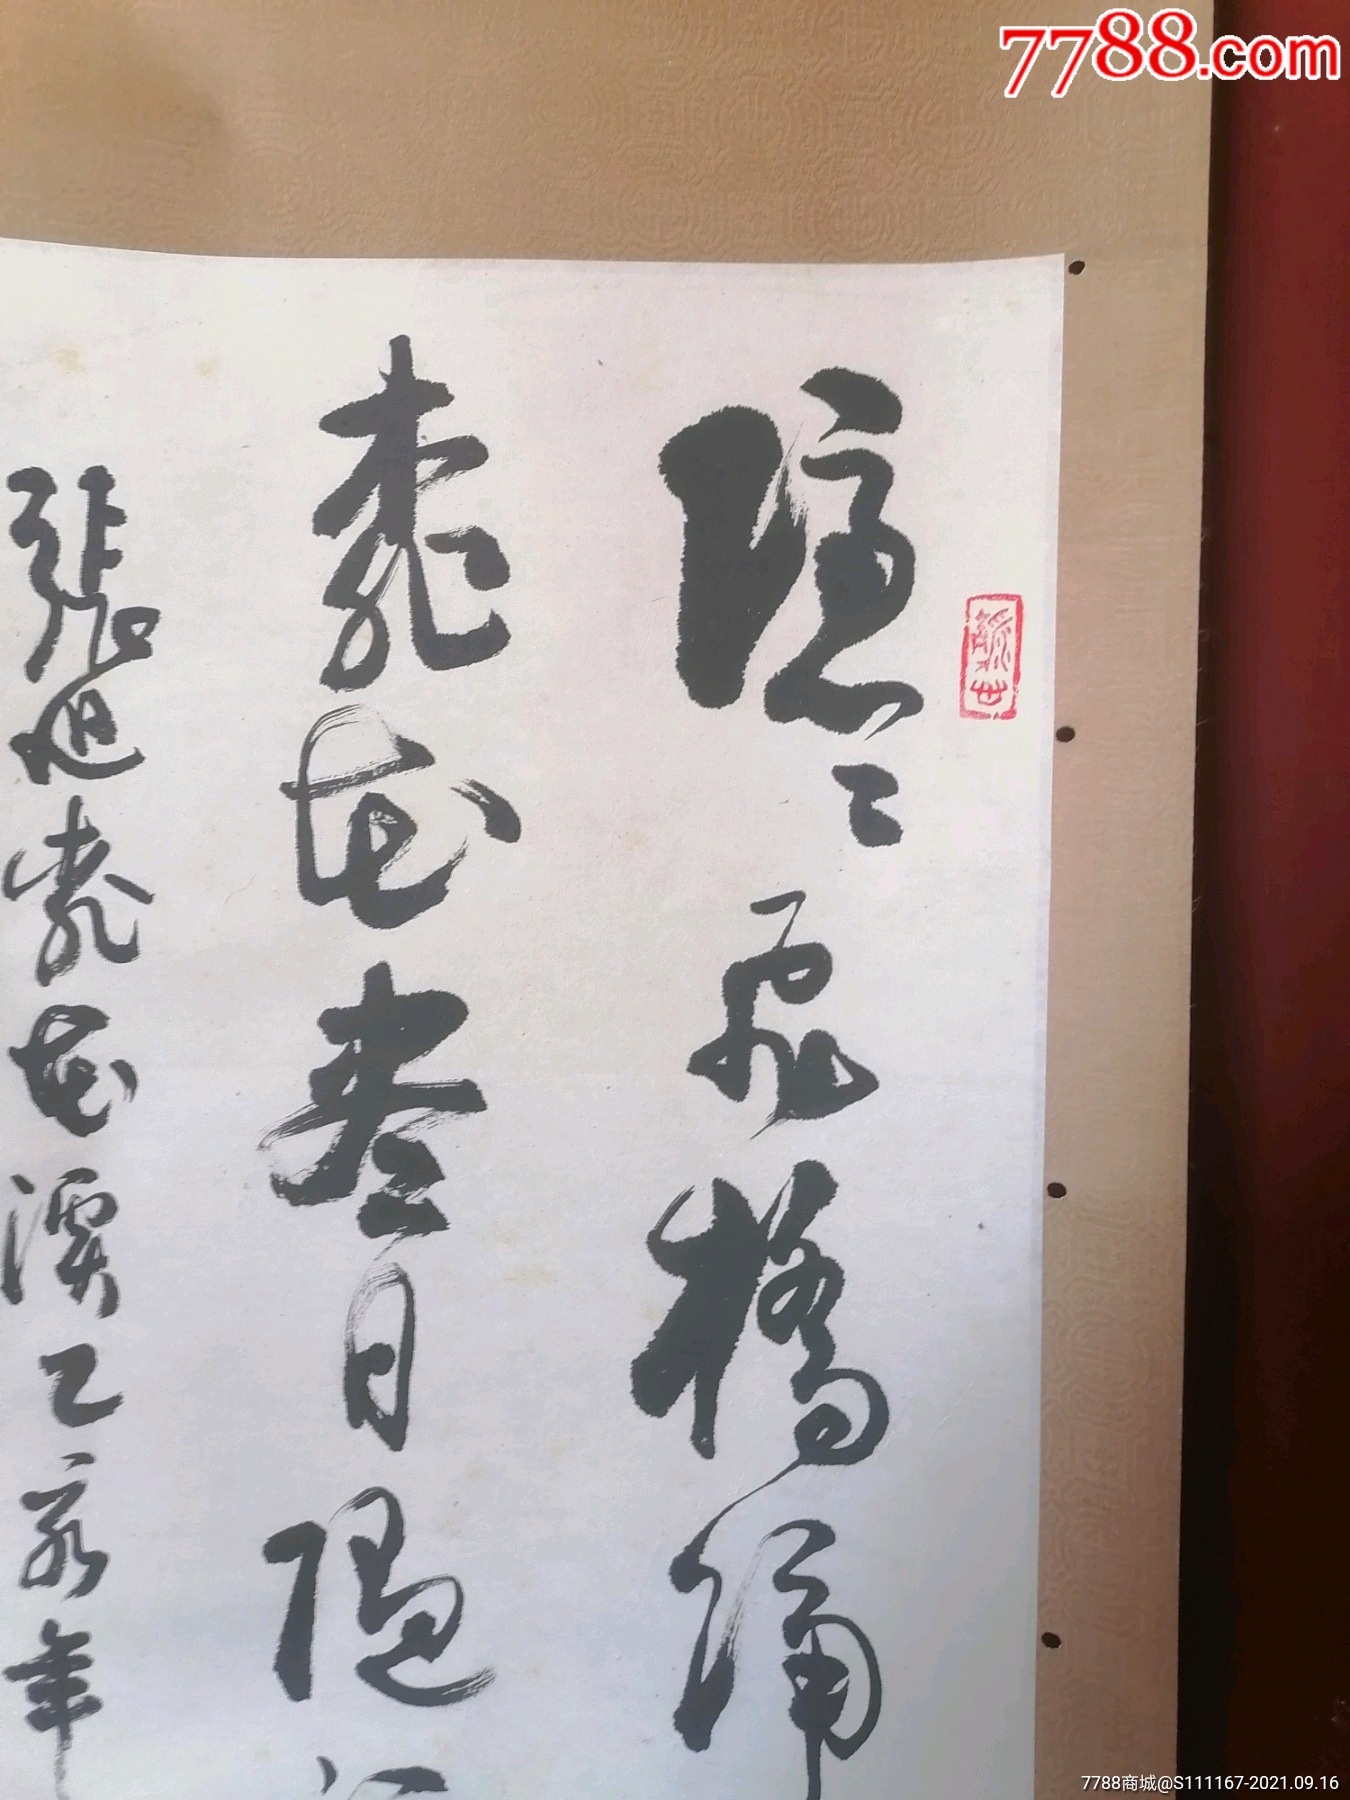 7788.com
隐〻飛橋隔
桃花尽日随
張旭桃花溪乙亥年
7788商城@S111167-2021.09.16